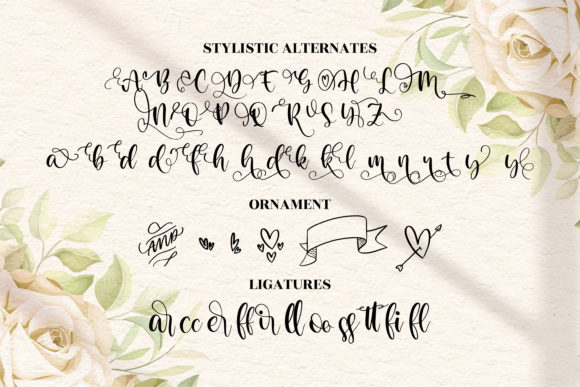 STYLISTIC ALTERNATES
A B C D E G H L M
N O P Q R S Y Z
a b d d f h h d k k l m n r t y y
ORNAMENT
AND
LIGATURES
ar cc er ff ir ll oo ss tt fi fl